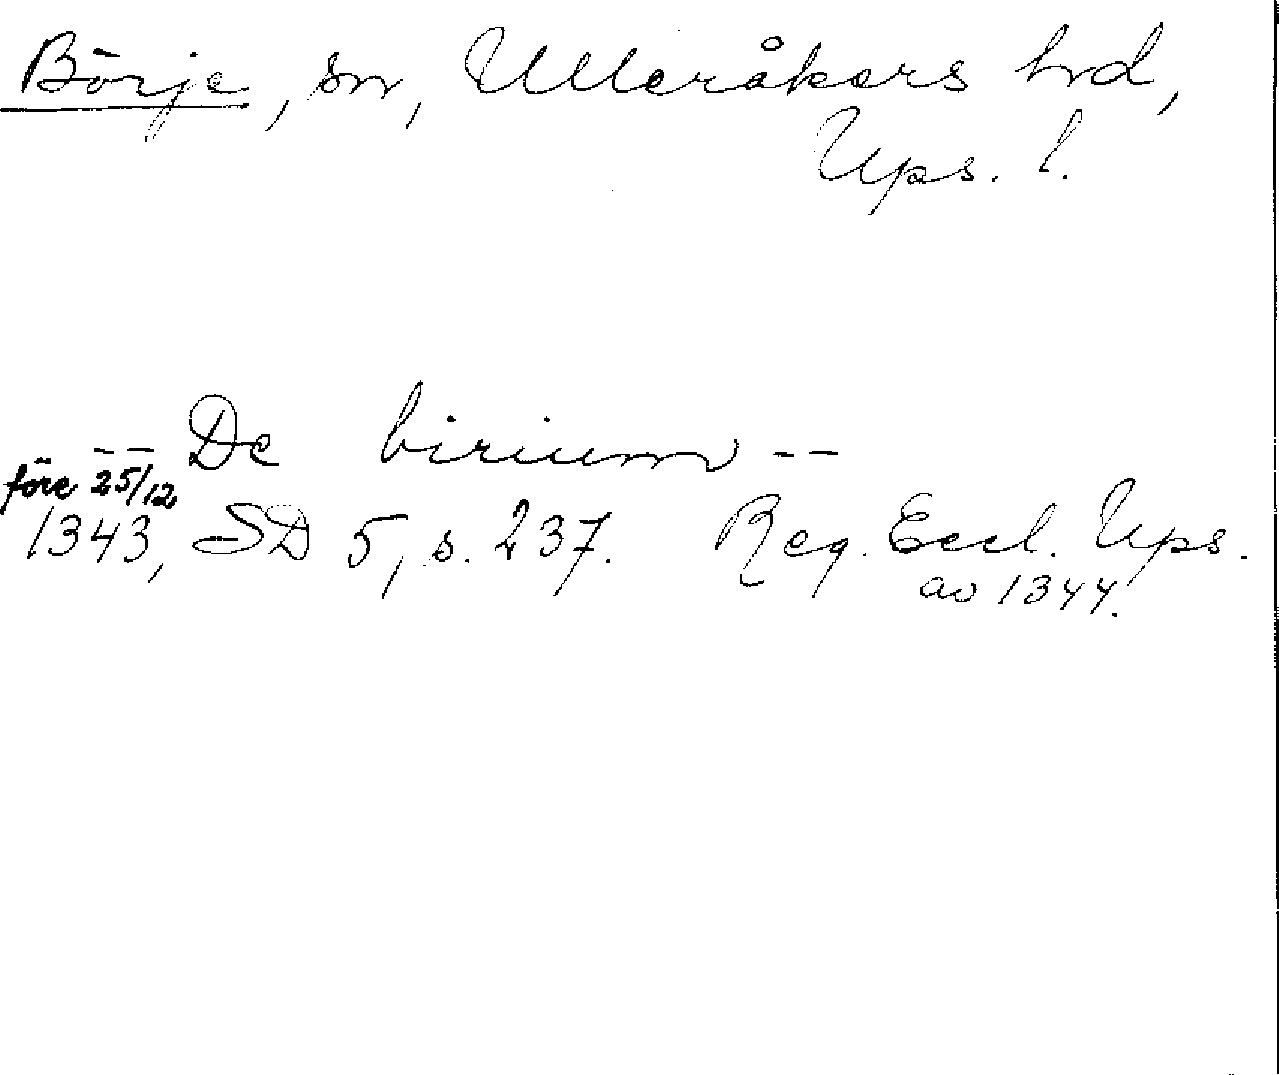 Börje, sn, Ulleråkers hd,
Ups. l.
-- De birium --
före 25/12
1343, SD 5, s. 237. Reg. Eccl. Ups.
av 1344.